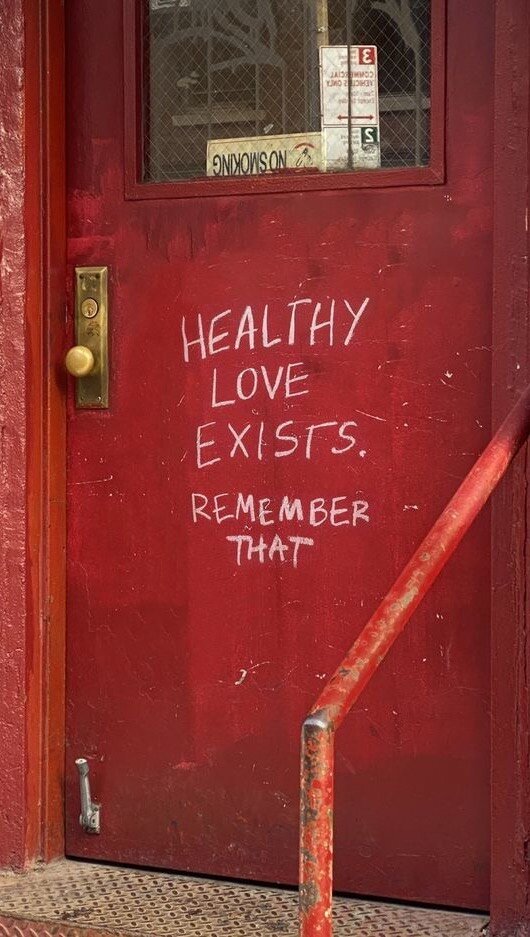 3
COMMERCIAL
VEHICLES ONLY
2
NO SMOKING
HEALTHY
LOVE
EXISTS.
REMEMBER
THAT